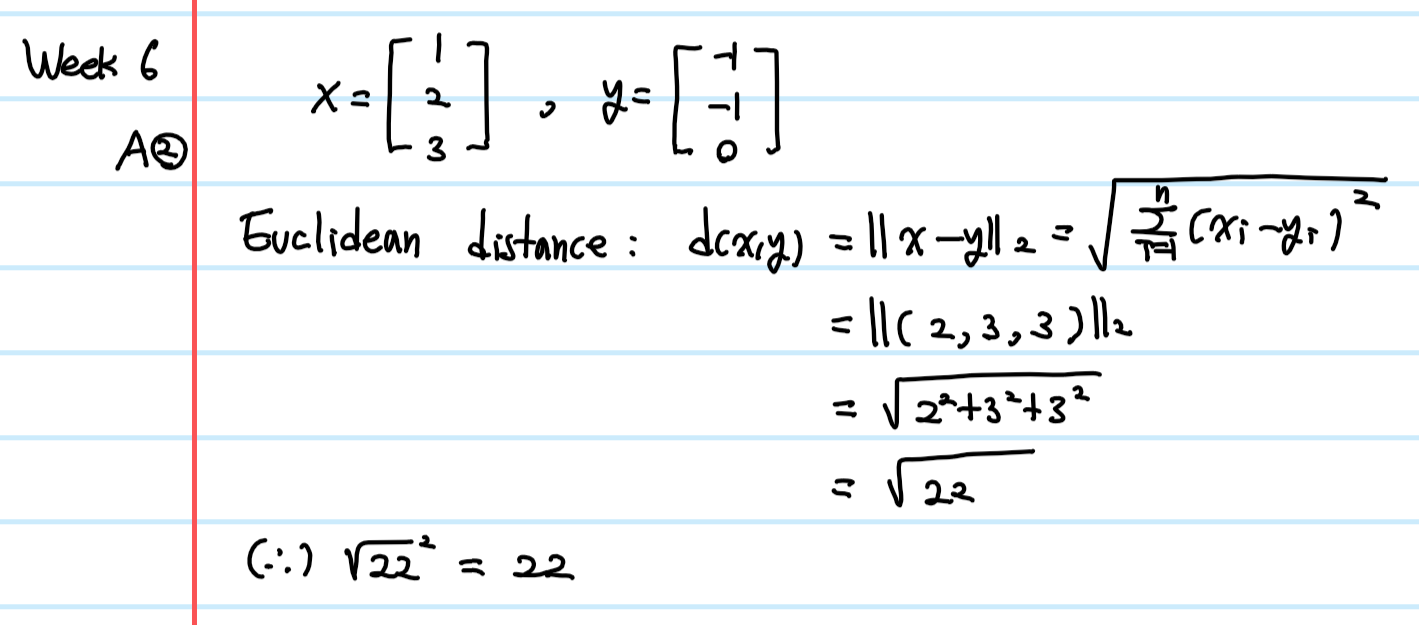 Week 6
A②
x = [1 2 3] , y = [-1 -1 0]
Euclidean distance : d(x,y) = ||x-y||₂ = √∑ⁿᵢ₌₁(xᵢ-yᵢ)²
= ||(2,3,3)||₂
= √2²+3²+3²
= √22
(∴) √22² = 22